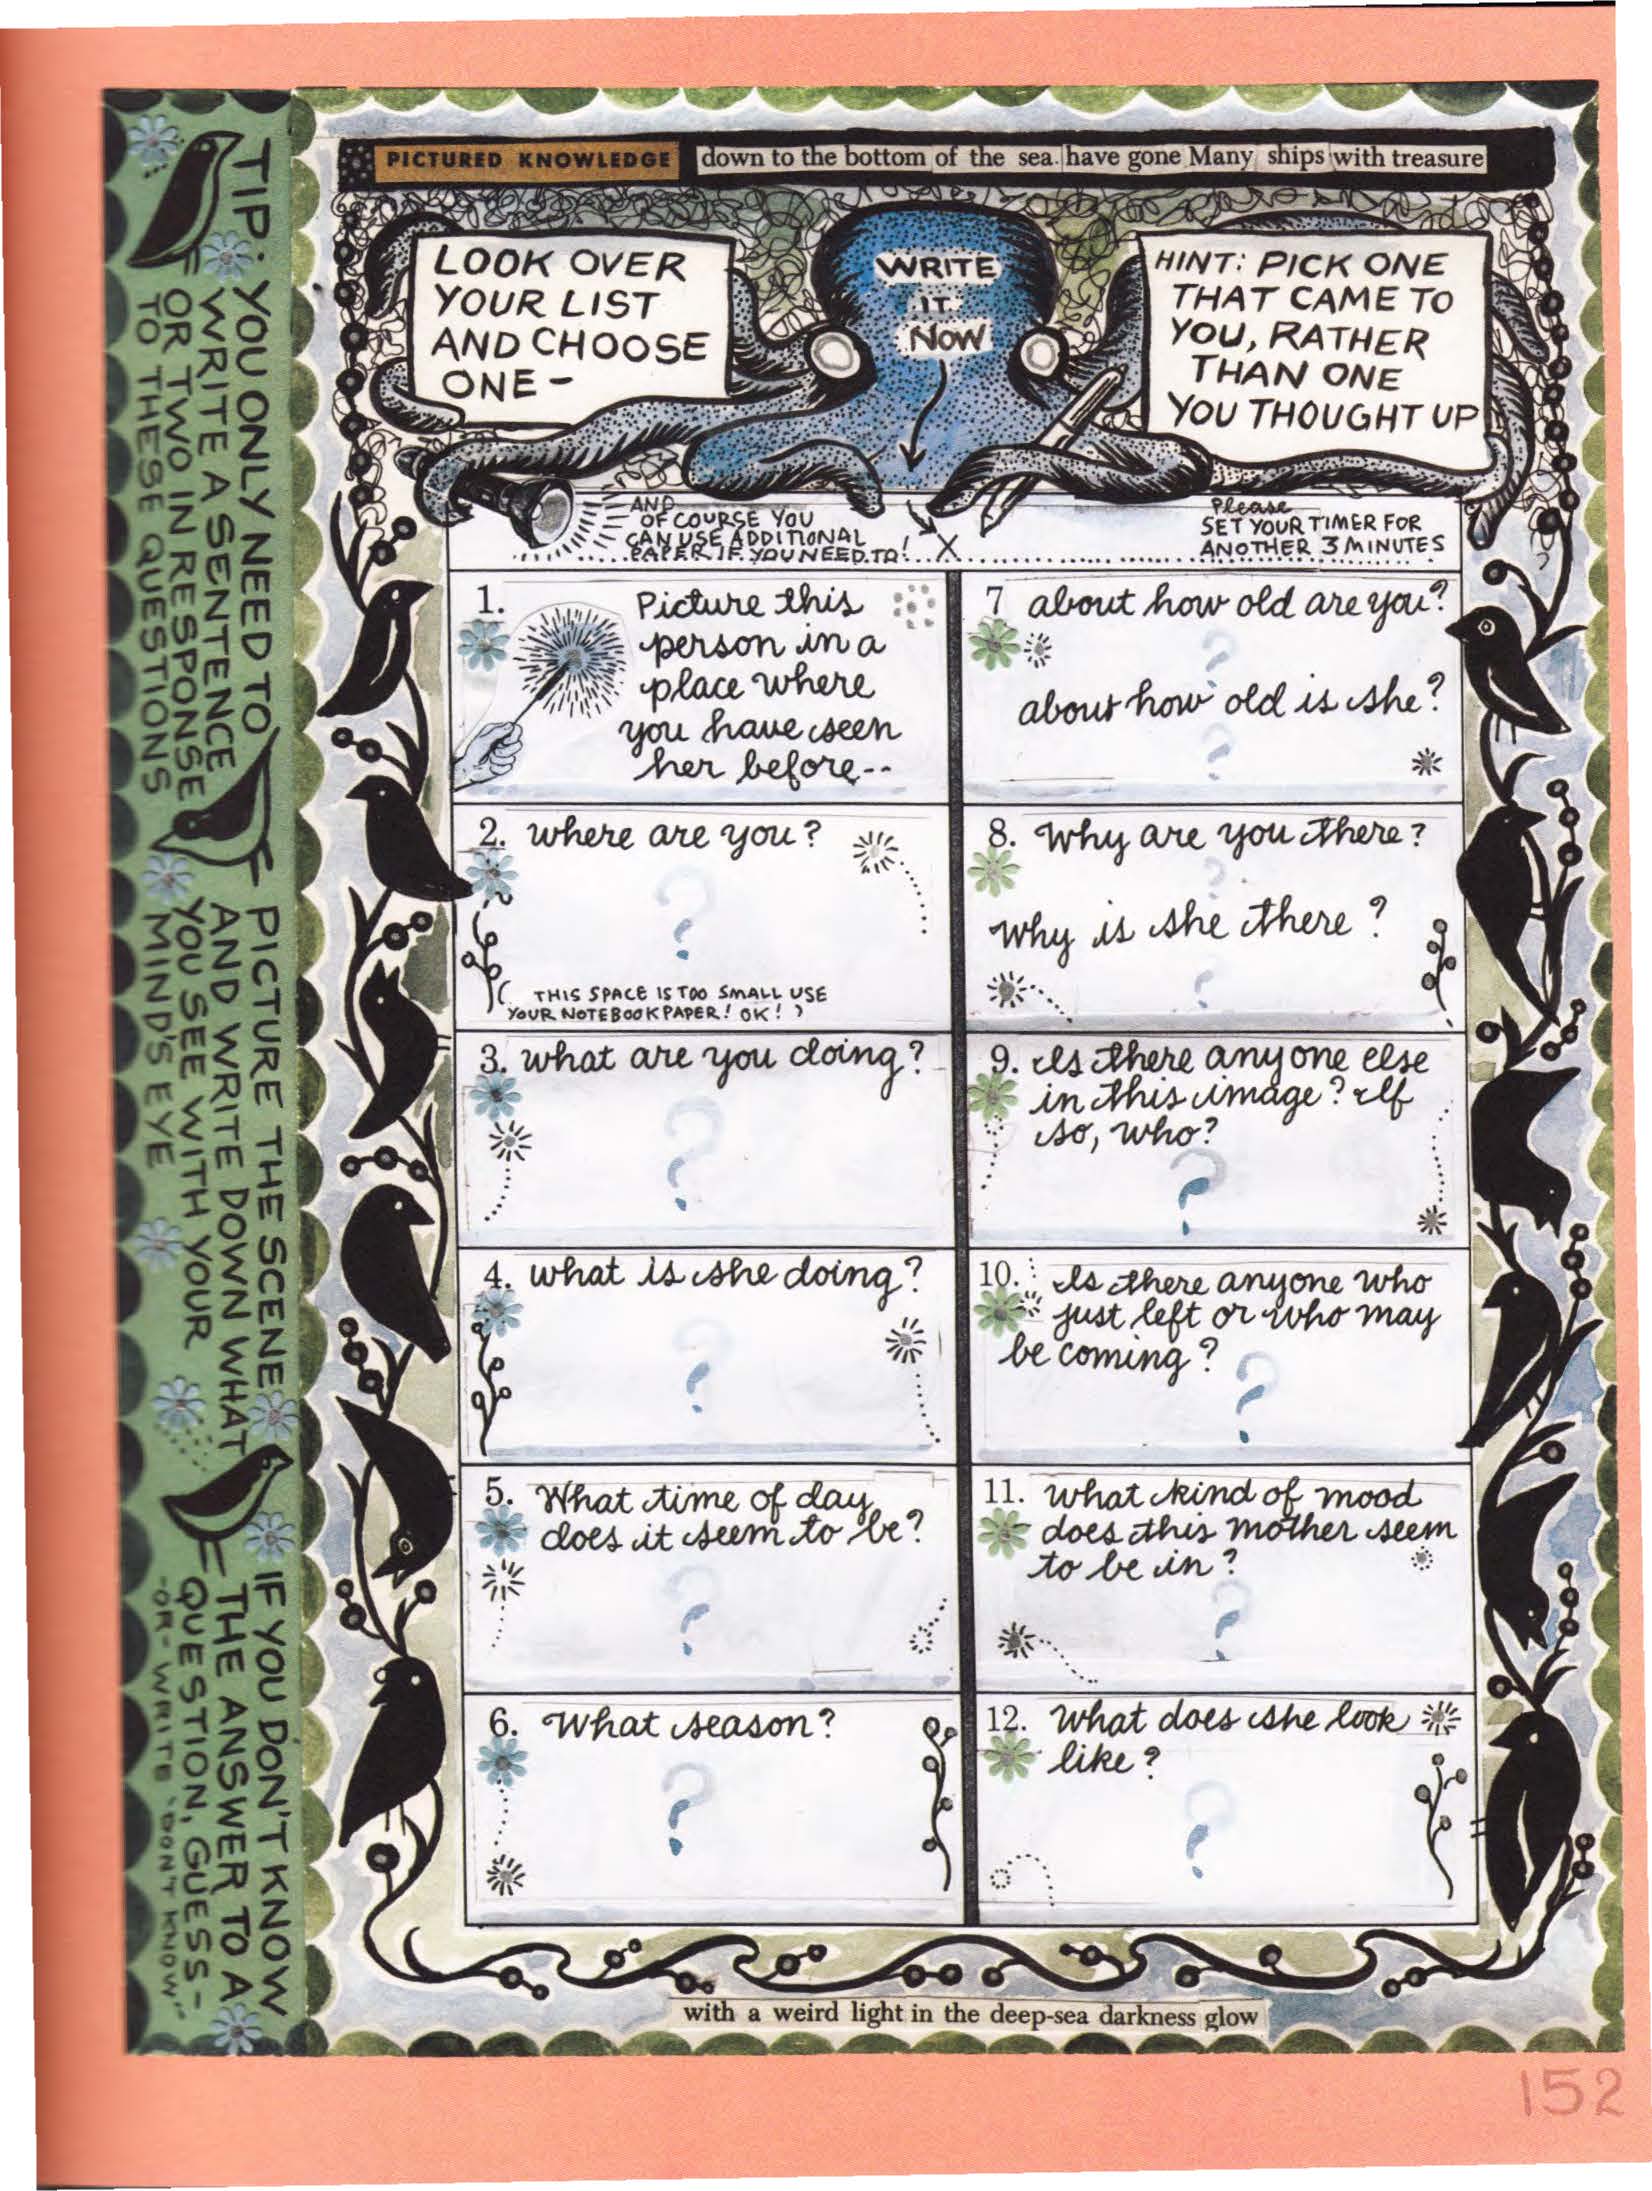 PICTURED KNOWLEDGE down to the bottom of the sea. have gone Many ships with treasure
LOOK OVER
YOUR LIST
AND CHOOSE
ONE –
WRITE
IT
NOW
HINT: PICK ONE
THAT CAME TO
YOU, RATHER
THAN ONE
YOU THOUGHT UP
AND
OF COURSE YOU
CAN USE ADDITIONAL
PAPER IF YOU NEED TO! X
Please
SET YOUR TIMER FOR
ANOTHER 3 MINUTES
1. Picture this
person in a
place where
you have seen
her before--
2. where are you?
?
( THIS SPACE IS TOO SMALL USE
YOUR NOTEBOOK PAPER! OK! )
3. what are you doing?
?
4. what is she doing?
?
5. What time of day
does it seem to be?
?
6. What season?
?
7 about how old are you?
?
about how old is she?
?
8. Why are you there?
?
Why is she there?
?
9. Is there anyone else
in this image? If
so, who?
?
10. Is there anyone who
just left or who may
be coming?
?
11. What kind of mood
does this mother seem
to be in?
?
12. What does she look
like?
?
with a weird light in the deep-sea darkness glow
TIP: YOU ONLY NEED TO
WRITE A SENTENCE
OR TWO IN RESPONSE
TO THESE QUESTIONS
PICTURE THE SCENE
AND WRITE DOWN WHAT
YOU SEE WITH YOUR
MIND'S EYE
IF YOU DON'T KNOW
THE ANSWER TO A
QUESTION, GUESS-
-OR- WRITE "DON'T KNOW"
152